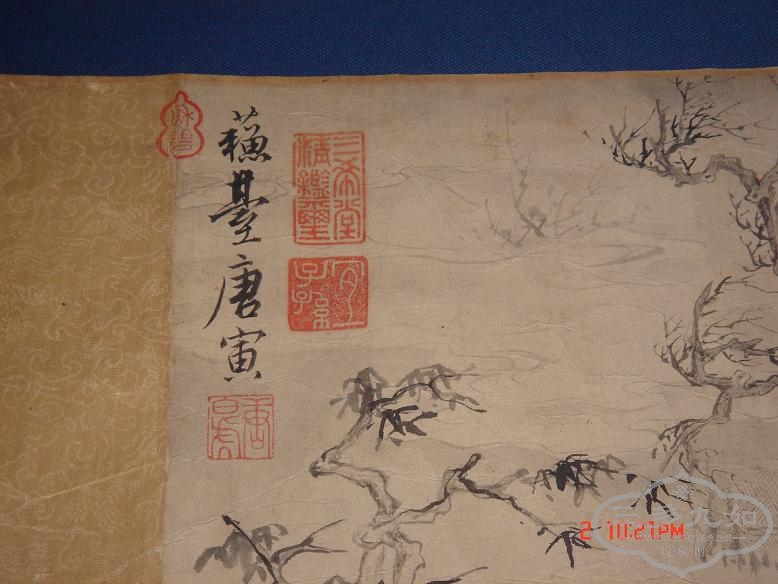 蘓臺唐寅
三希堂精鑑璽
宜子孫
唐寅
2 10:21PM
九如